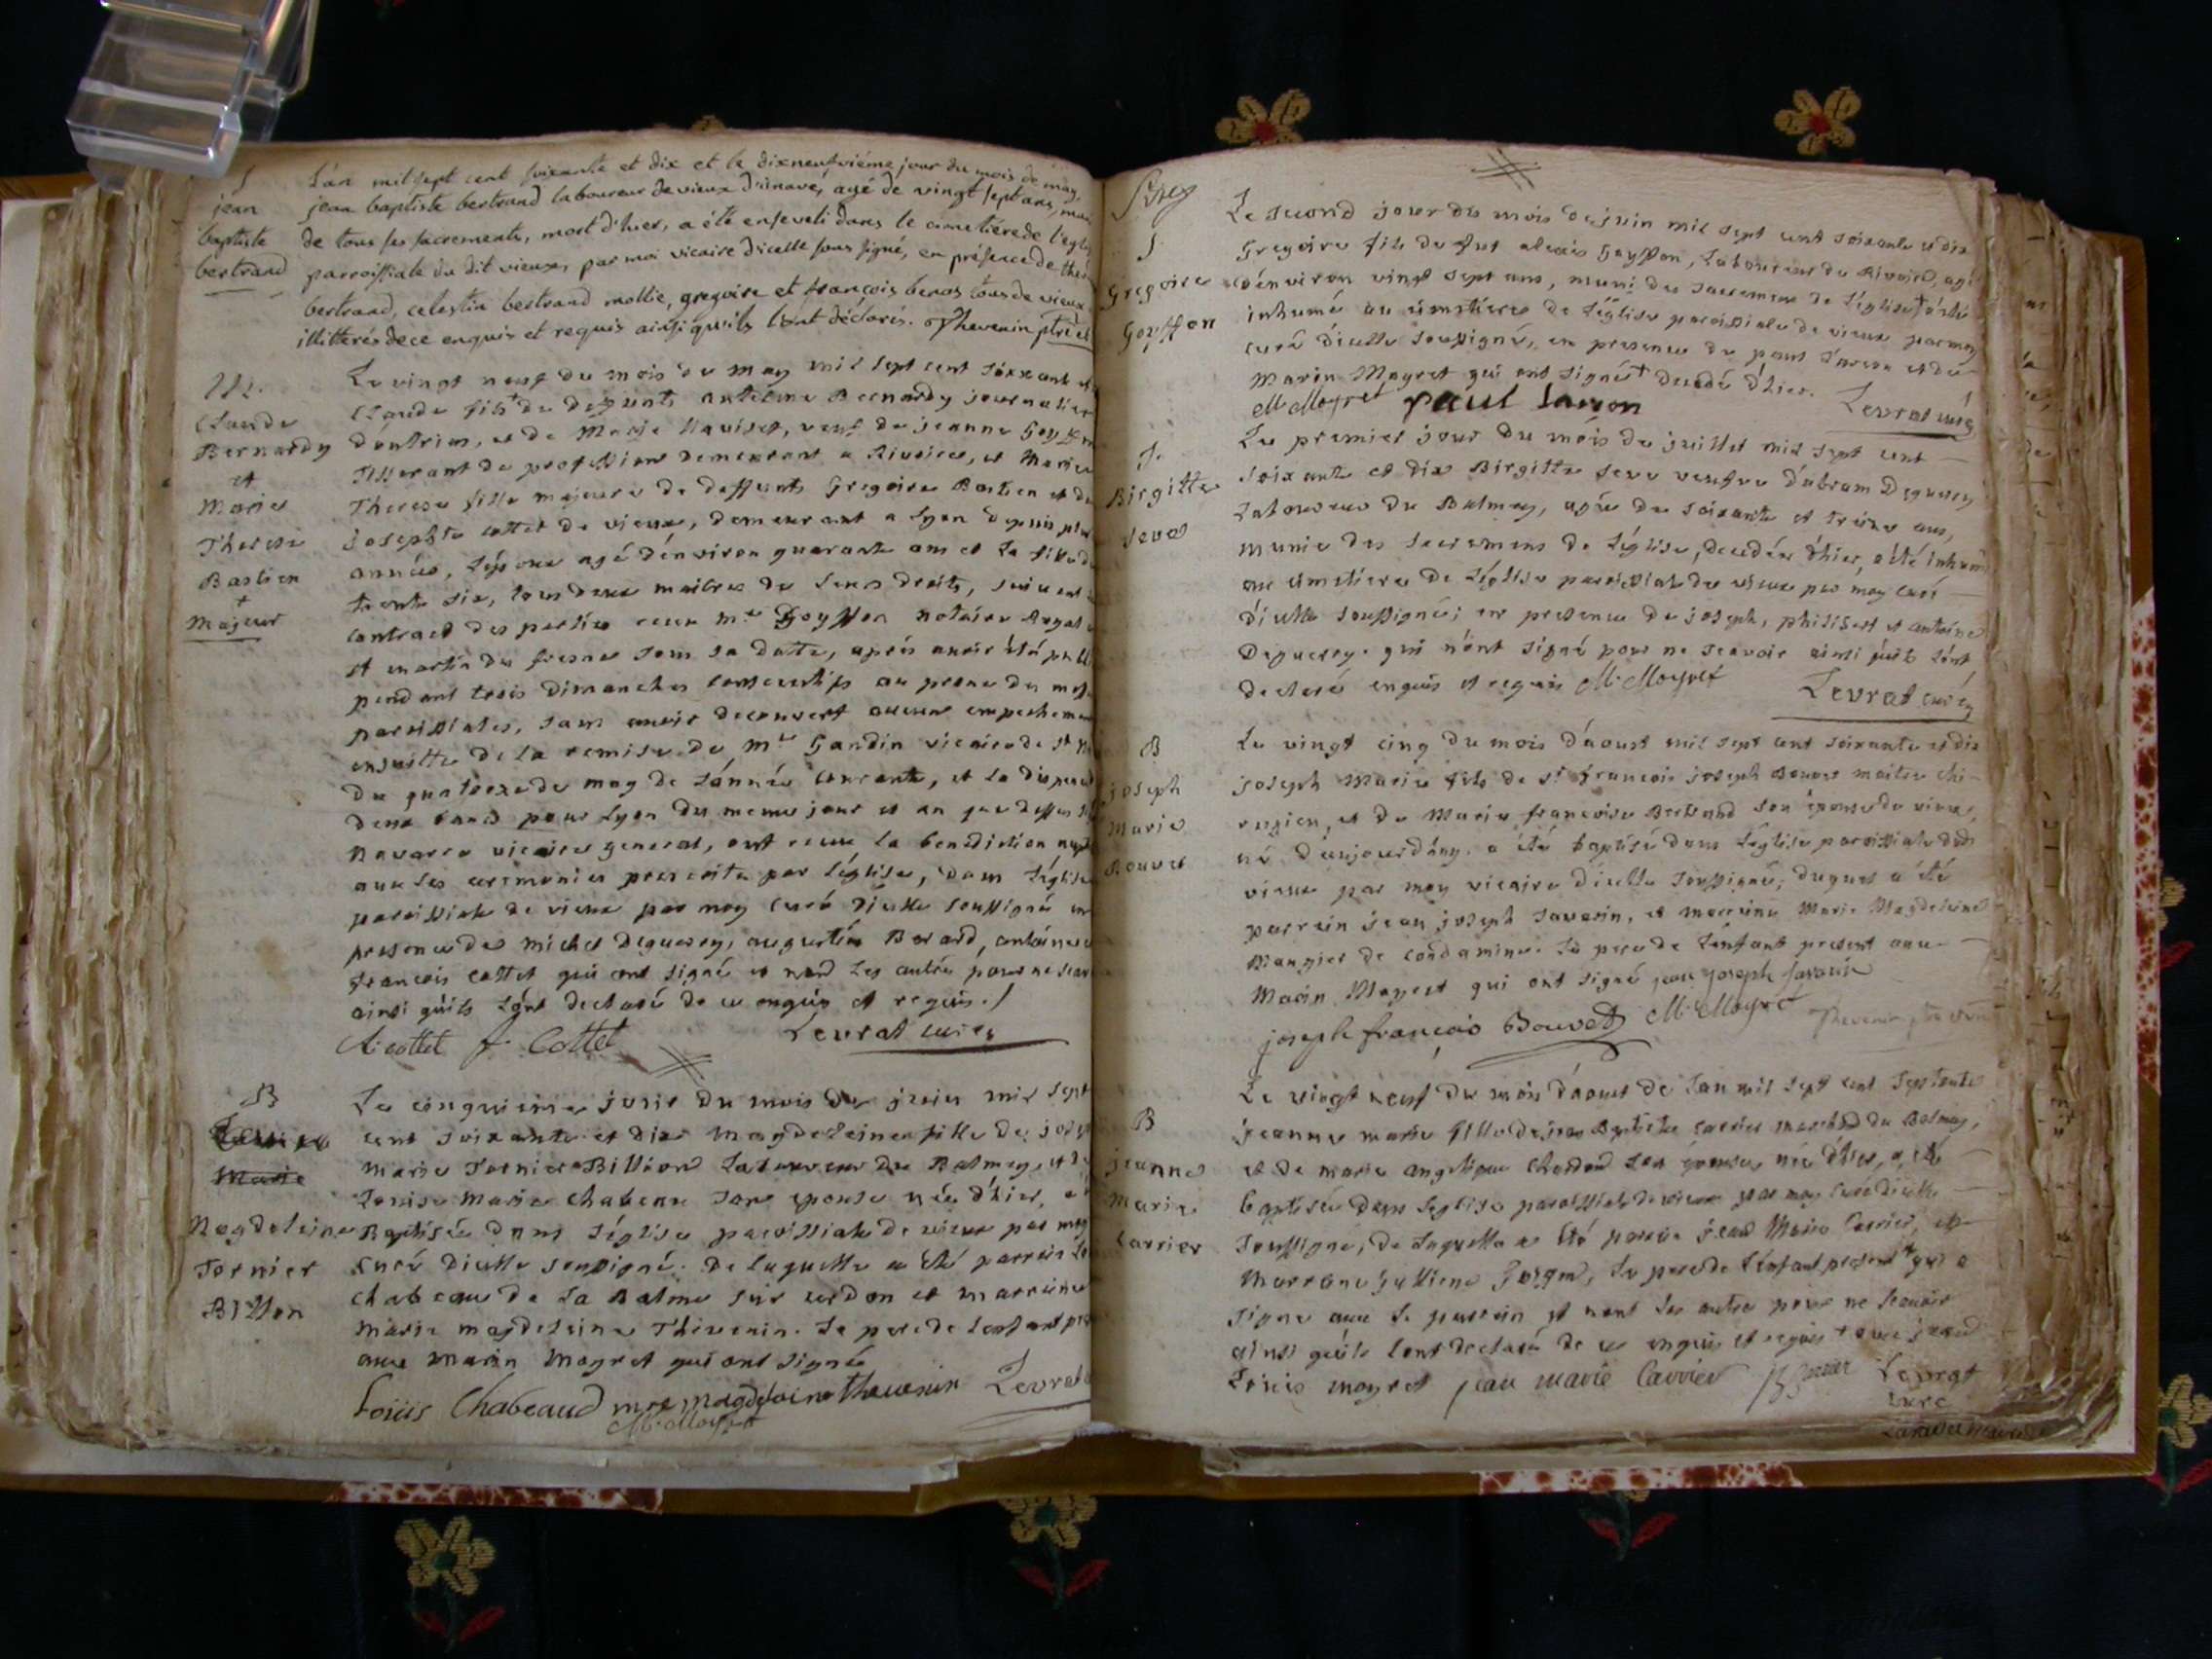 S
jean
baptiste
bertrand
L'an mil sept cent soixante et dix et le dixneufvième jour du mois de may
jean baptiste bertrand laboureur de vieux d'izenave, agé de vingt sept ans, muni
de tous ses sacrements, mort d'hier, a été enseveli dans le cimetière de l'eglise
parroissiale du dit vieux, par moi vicaire d'icelle sous signé, en présence de
bertrand, celestin bertrand mollie, gregoire et françois benos tous de vieux
illitterés de ce enquis et requis ainsi qu'ils l'ont déclarés. Thevenin ptre et
M.
Claude
Bernardy
et
Marie
Therese
Bastien
+
Majeur
Le vingt neuf du mois de may mil sept cent soixante et
Claude fils + de deffunts antelme Bernardy journalier
d'ontrias, et de Marie veuf de jeanne Goyffon
Tisserant de profession demeurant a Rivoire, et Marie
Therese fille majeure de deffunts Gregoire Bastien et de
josephte cottet de vieux, demeurant a Lyon depuis plus
années, L'époux agé d'environ quarante ans et la fille de
trente six, tous deux maitres de leurs droits, suivant
contract des parties receu me Goyffon notaire Royal a
st martin du fresne sous sa datte, aprés avoir été publ
pendant trois Dimanches consecutifs au prone des mess
paroissiales, sans avoir decouvert aucun empechement
ensuitte de la remise de mre Gandin vicaire de st
du quatorze de may de l'année courante, et la dispense
deux bancs pour Lyon du meme jour et an que dessus
Navarre vicaire general, ont receu la benediction nupt
avec les ceremonies prescrite par l'église, dans l'église
paroissiale de vieux par moy curé d'icelle soussigné en
presence de michel Deguerry, augustin Berard, antoine
francois cottet qui ont signé et nond les autres pour ne scav
ainsi qu'ils l'ont declaré de ce enquis et requis./
A. cottet f. Cottet Levrat curé
B
Magdeleine
Tornier
Billon
Le cinquieme jour du mois de juin mil sept
cent soixante et dix magdeleine fille de josep
Marie Tornier Billion Laboureur du Balmey, et de
Louise Marie Chabeau son epouse née d'hier, a
Baptisée dans l'église paroissiale de vieux par moy
curé d'icelle soussigné. De laquelle a été parrein
chabeau de La Balme sur cerdon et marreine
Marie magdeleine Thevenin. Le pere de l'enfant pre
avec Marin Moyret qui ont signé
Louis Chabeaud mre magdelaine thevenin Levrat
M. Moyret
S
Gregoire
Goyffon
Le second jour du mois de juin mil sept cent soixante et dix
Gregoire fils de fut alexis Goyffon, Laboureur du Rivoire, agé
d'environ vingt sept ans, muni des sacremens de l'église + a été
inhumé au cimetiere de l'église paroissiale de vieux par moy
curé d'icelle soussigné, en presence de paul Savon et de
Marin Moyret qui ont signé + decedé d'hier.
M. Moyret paul Savon Levrat curé
S.
Birgitte
Seve
Le premier jour du mois de juillet mil sept cent
soixante et dix Birgitte Seve veufve d'abram Deguerry
Laboureur du Balmey, agée de soixante et treize ans,
munie des sacremens de l'église, decedée d'hier, a été inhumé
au cimetiere de l'église paroissiale de vieux par moy curé
d'icelle soussigné; en presence de joseph, philibert et antoine
Deguerry. qui n'ont signé pour ne scavoir ainsi qu'ils l'ont
declaré enquis et requis M. Moyret Levrat curé
B
joseph
Marie
Bouvet
Le vingt cinq du mois d'aoust mil sept cent soixante et dix
joseph Marie fils de sr francois joseph Bouvet maitre chi-
rurgien, et de Marie francoise Bertrand son épouse de vieux,
né d'aujourd'huy. a été baptisé dans l'église paroissiale dud
vieux par moy vicaire d'icelle soussigné, duquel a été
parrein jean joseph Savarin, et marreine Marie Magdeleine
de condamine. Le pere de l'enfant present avec
Marin Moyret qui ont signé jean joseph Savarin
joseph françois Bouvet M. Moyret Thevenin ptre
B
jeanne
Marie
Carrier
Le vingt neuf du mois d'aoust de l'an mil sept cent septante
jeanne marie fille de jean Baptiste carrier marchand du Balmey,
et de marie angelique son épouse, née d'hier, a été
baptisée dans l'église paroissiale de vieux par moy curé d'icelle
soussigné, de laquelle a été parrein jean Marie Carrier, et
Marreine, Le pere de l'enfant present + qui a
signe avec le parrein et nont les autres pour ne scavoir
ainsi qu'ils l'ont declaré de ce enquis et requis + avec jean
Louis moyret jean marie Carrier JB Carrier Levrat
curé